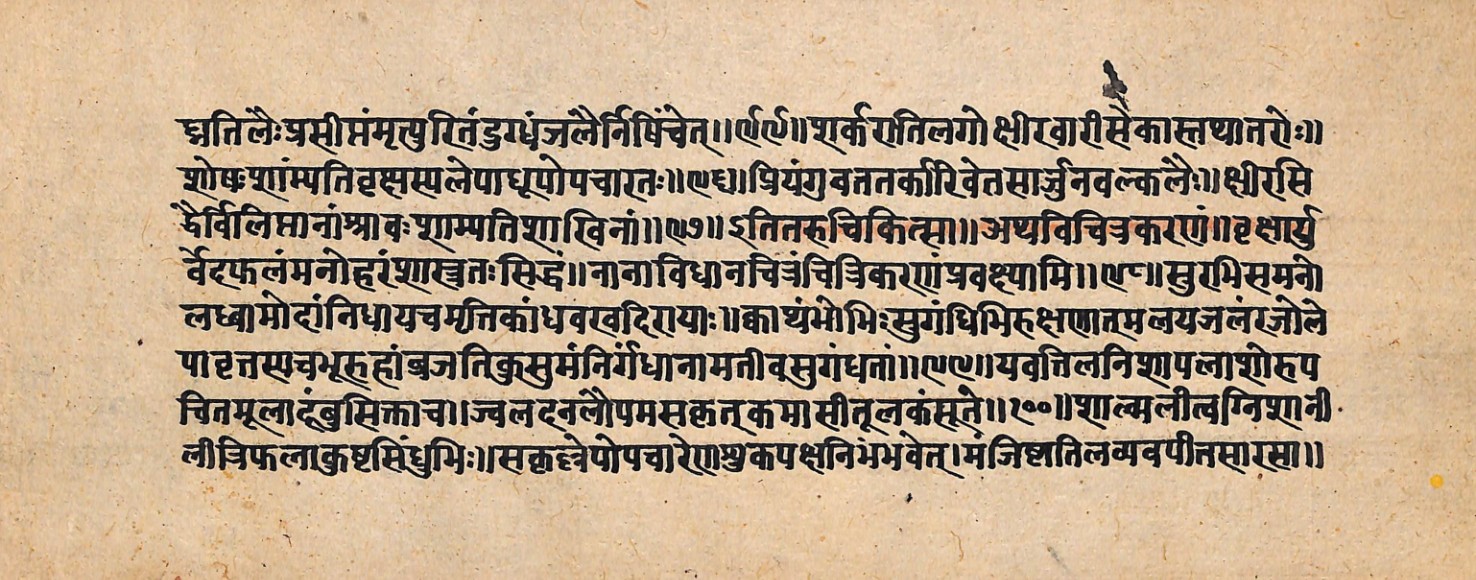 घ्नतिलैःप्रसीप्तंमृत्पुरितंदुग्धंजलैर्निषिंचेत्॥९९॥शर्करातिलगोक्षीरखारीसेकास्तथातरोः॥
शोषःशाम्पतिवृक्षस्पलेपाधूपोपचारतः॥९६॥प्रियंगुवततर्कारिवेतसार्जुनवल्कलैः॥क्षीरसि
द्वैर्विलिप्तानांश्रावःशाम्पतिशाखिनां॥९७॥इतितरुचिकित्सा॥अथविचित्रकरणं॥वृक्षार्यु
र्वेदफलंमनोहरंशास्त्रतःसिद्धं॥नानाविधानचित्रंचित्रिकरणंप्रवक्ष्पामि॥९८॥सुरभिसमनो
लध्वामोदांनिधायचमृत्तिकांधवखदिरायाः॥क्वाथंभोभिःसुगंधिभिरुक्षणातमलयजलंरजोले
पावृत्तस्पचभूरुहांव्रजतिकुसुमंनिर्गंधानामतीवसुगंधतां॥९९॥यवतिलनिशापलाशोरुप
चितमूलादंबुसिक्ताच॥ज्वलदनलौपमसकृत्कमासीतूलकंसूते॥१००॥शाल्मलीत्वग्निशानी
लीत्रिफलाकुष्टसिंधुभिः॥सकृदत्तेपोपचारेणशुकपक्षनिभंभवेत्।मंजिष्टातिलव्यवपीत्तसारसा॥